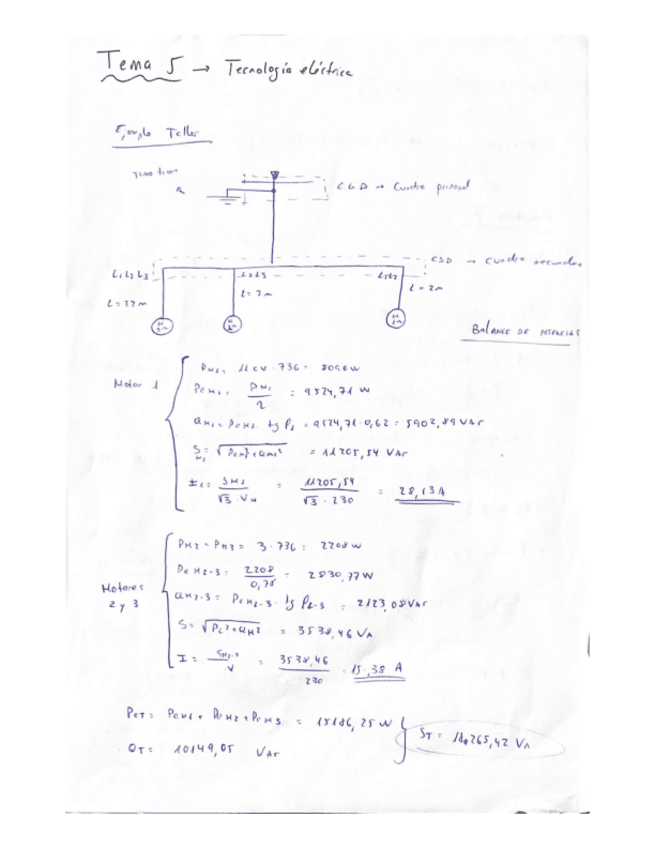 Tema 5 → Tecnología eléctrica
Ejemplo Taller
R
C.G.D → Cuadro principal
CSD → Cuadro secundario
L1 L2 L3
L2 L3
L1 L2
L = 17m
L = 7m
L = 2m
M
M
M
BALANCE DE POTENCIAS
Motor 1
PM1 = 11 CV · 736 = 8096 W
PeM1 = PM1 / η = 9524,71 W
QM1 = PeM1 · tg φ1 = 9524,71 · 0,62 = 5902,89 VAr
SM1 = √PeM1² + QM1² = 11205,54 VAr
I1 = SM1 / √3 · VN = 11205,54 / √3 · 230 = 28,13 A
Motores 2 y 3
PM2 = PM3 = 3 · 736 = 2208 W
PeM2-3 = 2208 / 0,78 = 2830,77 W
QM2-3 = PeM2-3 · tg φ2-3 = 2123,08 VAr
S = √Pe² + QM² = 3538,46 VA
I = SM2-3 / V = 3538,46 / 230 = 15,38 A
PeT = PeM1 + PeM2 + PeM3 = 15186,25 W
QT = 10149,05 VAr
ST = 18265,42 VA